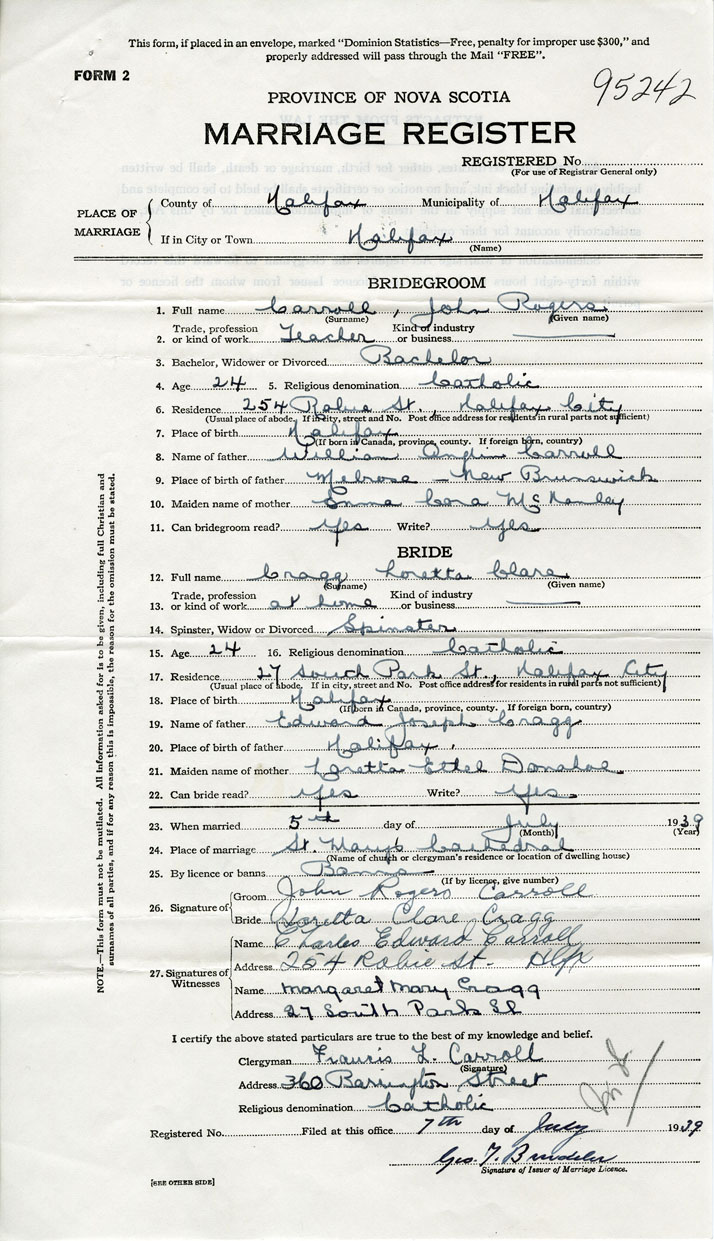 This form, if placed in an envelope, marked "Dominion Statistics—Free, penalty for improper use $300," and
properly addressed will pass through the Mail "FREE".
FORM 2
95242
PROVINCE OF NOVA SCOTIA
MARRIAGE REGISTER
REGISTERED No.
(For use of Registrar General only)
PLACE OF MARRIAGE
County of Halifax Municipality of Halifax
If in City or Town Halifax
(Name)
BRIDEGROOM
1. Full name Carroll, John Rogers
(Surname) (Given name)
2. Trade, profession or kind of work Teacher Kind of industry or business
3. Bachelor, Widower or Divorced Bachelor
4. Age 24 5. Religious denomination Catholic
6. Residence 254 Robie St., Halifax City
(Usual place of abode. If in city, street and No. Post office address for residents in rural parts not sufficient)
7. Place of birth Halifax
(If born in Canada, province, county. If foreign born, country)
8. Name of father William Anglin Carroll
9. Place of birth of father Melrose - New Brunswick
10. Maiden name of mother Emma Cora
11. Can bridegroom read? Yes Write? Yes
BRIDE
12. Full name Cragg Loretta Clare
(Surname) (Given name)
13. Trade, profession or kind of work at home Kind of industry or business
14. Spinster, Widow or Divorced Spinster
15. Age 24 16. Religious denomination Catholic
17. Residence 27 South Park St., Halifax City
(Usual place of abode. If in city, street and No. Post office address for residents in rural parts not sufficient)
18. Place of birth Halifax
(If born in Canada, province, county. If foreign born, country)
19. Name of father Edward Joseph Cragg
20. Place of birth of father Halifax.
21. Maiden name of mother Loretta Ethel Donahoe
22. Can bride read? Yes Write? Yes
23. When married 5th day of July 1939
(Month) (Year)
24. Place of marriage St. Mary's Cathedral
(Name of church or clergyman's residence or location of dwelling house)
25. By licence or banns Banns
(If by licence, give number)
26. Signature of
Groom John Rogers Carroll
Bride Loretta Clare Cragg
27. Signatures of Witnesses
Name Charles Edward Carroll
Address 254 Robie St. Hlfx
Name Margaret Mary Cragg
Address 27 South Park St
I certify the above stated particulars are true to the best of my knowledge and belief.
Clergyman Francis L. Carroll
(Signature)
Address 360 Barrington Street
Religious denomination Catholic
Registered No. Filed at this office 7th day of July 1939
Geo. T.
Signature of Issuer of Marriage Licence.
[SEE OTHER SIDE]
NOTE.—This form must not be mutilated. All information asked for is to be given, including full Christian and
surnames of all parties, and if for any reason this is impossible, the reason for the omission must be stated.